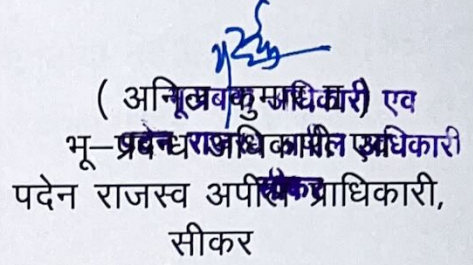 ( अनिल कुमार )
भू–प्रबन्ध अधिकारी एवं
पदेन राजस्व अपील प्राधिकारी,
सीकर
भू-प्रबन्ध अधिकारी एव
पदेन राजस्व अपील अधिकारी
सीकर